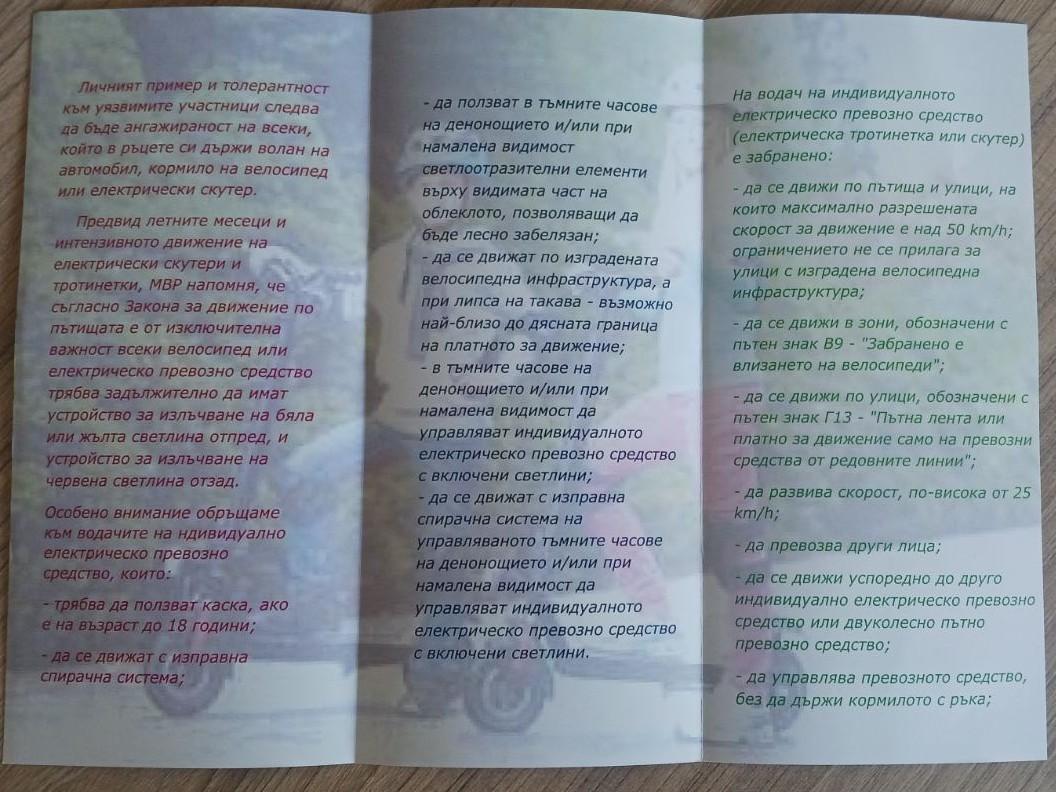 Личният пример и толерантност
към уязвимите участници следва
да бъде ангажираност на всеки,
който в ръцете си държи волан на
автомобил, кормило на велосипед
или електрически скутер.
Предвид летните месеци и
интензивното движение на
електрически скутери и
тротинетки, МВР напомня, че
съгласно Закона за движение по
пътищата е от изключителна
важност всеки велосипед или
електрическо превозно средство
трябва задължително да имат
устройство за излъчване на бяла
или жълта светлина отпред, и
устройство за излъчване на
червена светлина отзад.
Особено внимание обръщаме
към водачите на ндивидуално
електрическо превозно
средство, които:
- трябва да ползват каска, ако
е на възраст до 18 години;
- да се движат с изправна
спирачна система;
- да ползват в тъмните часове
на денонощието и/или при
намалена видимост
светлоотразителни елементи
върху видимата част на
облеклото, позволяващи да
бъде лесно забелязан;
- да се движат по изградената
велосипедна инфраструктура, а
при липса на такава - възможно
най-близо до дясната граница
на платното за движение;
- в тъмните часове на
денонощието и/или при
намалена видимост да
управляват индивидуалното
електрическо превозно средство
с включени светлини;
- да се движат с изправна
спирачна система на
управляваното тъмните часове
на денонощието и/или при
намалена видимост да
управляват индивидуалното
електрическо превозно средство
с включени светлини.
На водач на индивидуалното
електрическо превозно средство
(електрическа тротинетка или скутер)
е забранено:
- да се движи по пътища и улици, на
които максимално разрешената
скорост за движение е над 50 km/h;
ограничението не се прилага за
улици с изградена велосипедна
инфраструктура;
- да се движи в зони, обозначени с
пътен знак В9 - "Забранено е
влизането на велосипеди";
- да се движи по улици, обозначени с
пътен знак Г13 - "Пътна лента или
платно за движение само на превозни
средства от редовните линии";
- да развива скорост, по-висока от 25
km/h;
- да превозва други лица;
- да се движи успоредно до друго
индивидуално електрическо превозно
средство или двуколесно пътно
превозно средство;
- да управлява превозното средство,
без да държи кормилото с ръка;